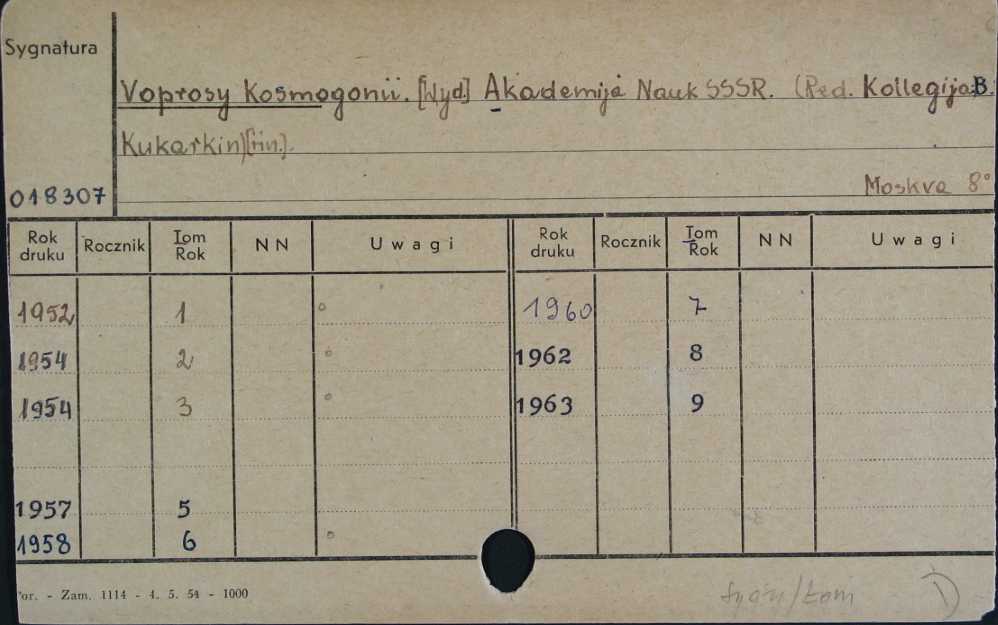 Sygnatura
Voprosy Kosmogonii. [Wyd.] Akademija Nauk SSSR. (Red. Kollegija: B.
Kukarkin) [i in.].
018307
Moskva 8°
Rok druku Rocznik Tom Rok NN Uwagi Rok druku Rocznik Tom Rok NN Uwagi
1952 1 ° 1960 7
1954 2 ° 1962 8
1954 3 ° 1963 9
1957 5
1958 6 °
or. - Zam. 1114 - 4. 5. 54 - 1000